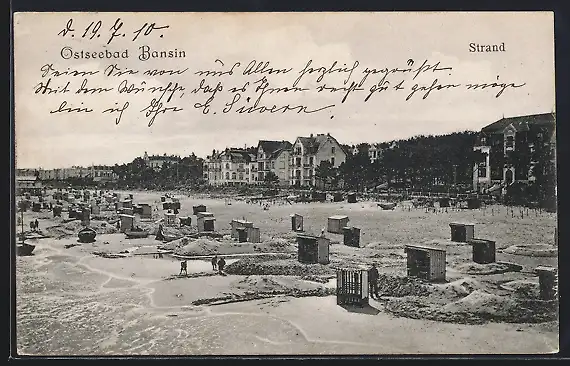 d. 19. 7. 10.
Ostseebad Bansin
Strand
Seien Sie von uns Allen herzlich gegrüßt.
Mit dem Wunsche, daß es Ihnen recht gut gehen möge
bin ich Ihre E.